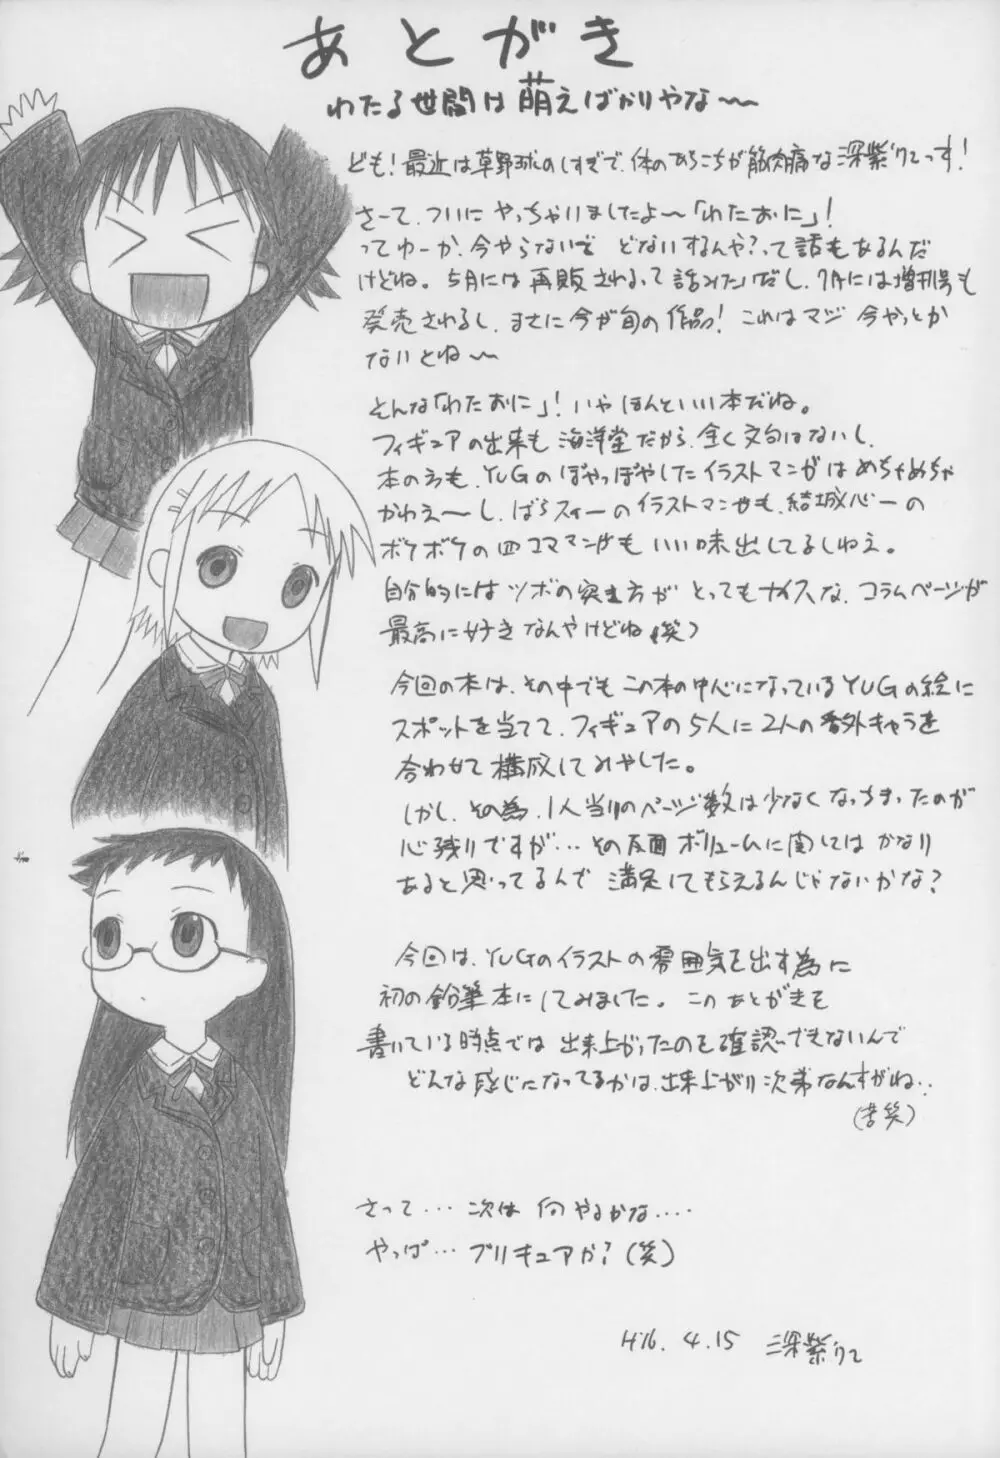 あとがき
わたる世間は萌えばかりやな〜
ども!最近は草野球のしすぎで、体のあちこちが筋肉痛な深紫りてっす!
さーて、ついにやっちゃいましたよ〜「わたおに」!
ってゆーか、今やらないで どないするんや?って話もあるんだ
けどね。5月には再販されるって話みたいだし、7月には増刊号も
発売されるし、まさに今が旬の作品! これはマジ 今やっとか
ないとね〜
そんな「わたおに」!いやほんといい本だね。
フィギュアの出来も 海洋堂だから、全く文句はないし、
本の方も、YUGのぽやっぽやしたイラストマンガはめちゃめちゃ
かわえ〜し、ばらスィーのイラストマンガも、結城心一の
ボケボケの四コママンガも いい味出してるしねえ。
自分的にはツボの突き方が とってもナイスな、コラムページが
最高に好きなんやけどね(笑)
今回の本は、その中でもこの本の中心になっているYUGの絵に
スポットを当てて、フィギュアの5人に2人の番外キャラを
合わせて構成してみやした。
しかし、その為、1人当りのページ数は少なくなっちまったのが
心残りですが…その反面ボリュームに関してはかなり
あると思ってるんで 満足してもらえるんじゃないかな?
今回は、YUGのイラストの雰囲気を出す為に
初の鉛筆本にしてみました。このあとがきを
書いている時点では 出来上がったのを確認できないんで
どんな感じになってるかは、出来上がり次第なんすがね‥
(苦笑)
さって… 次は 何やるかな‥‥
やっぱ… プリキュアか?(笑)
H16. 4.15 深紫りて